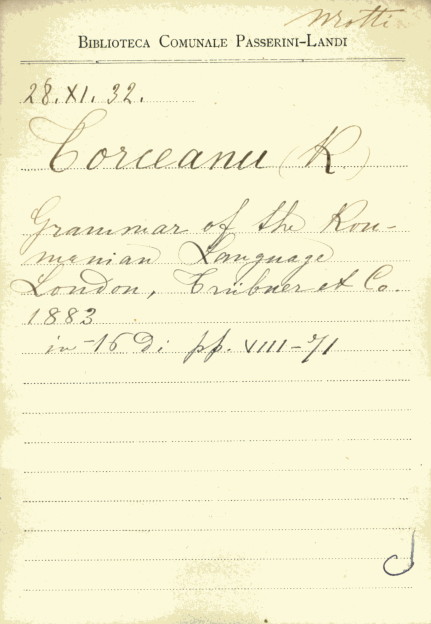 Mrotti
BIBLIOTECA COMUNALE PASSERINI-LANDI
28.XI.32.
Torceanu (R.)
Grammar of the Rou-
manian Language
London, Trübner et Co.
1883
in-16 di pp. VIII-71